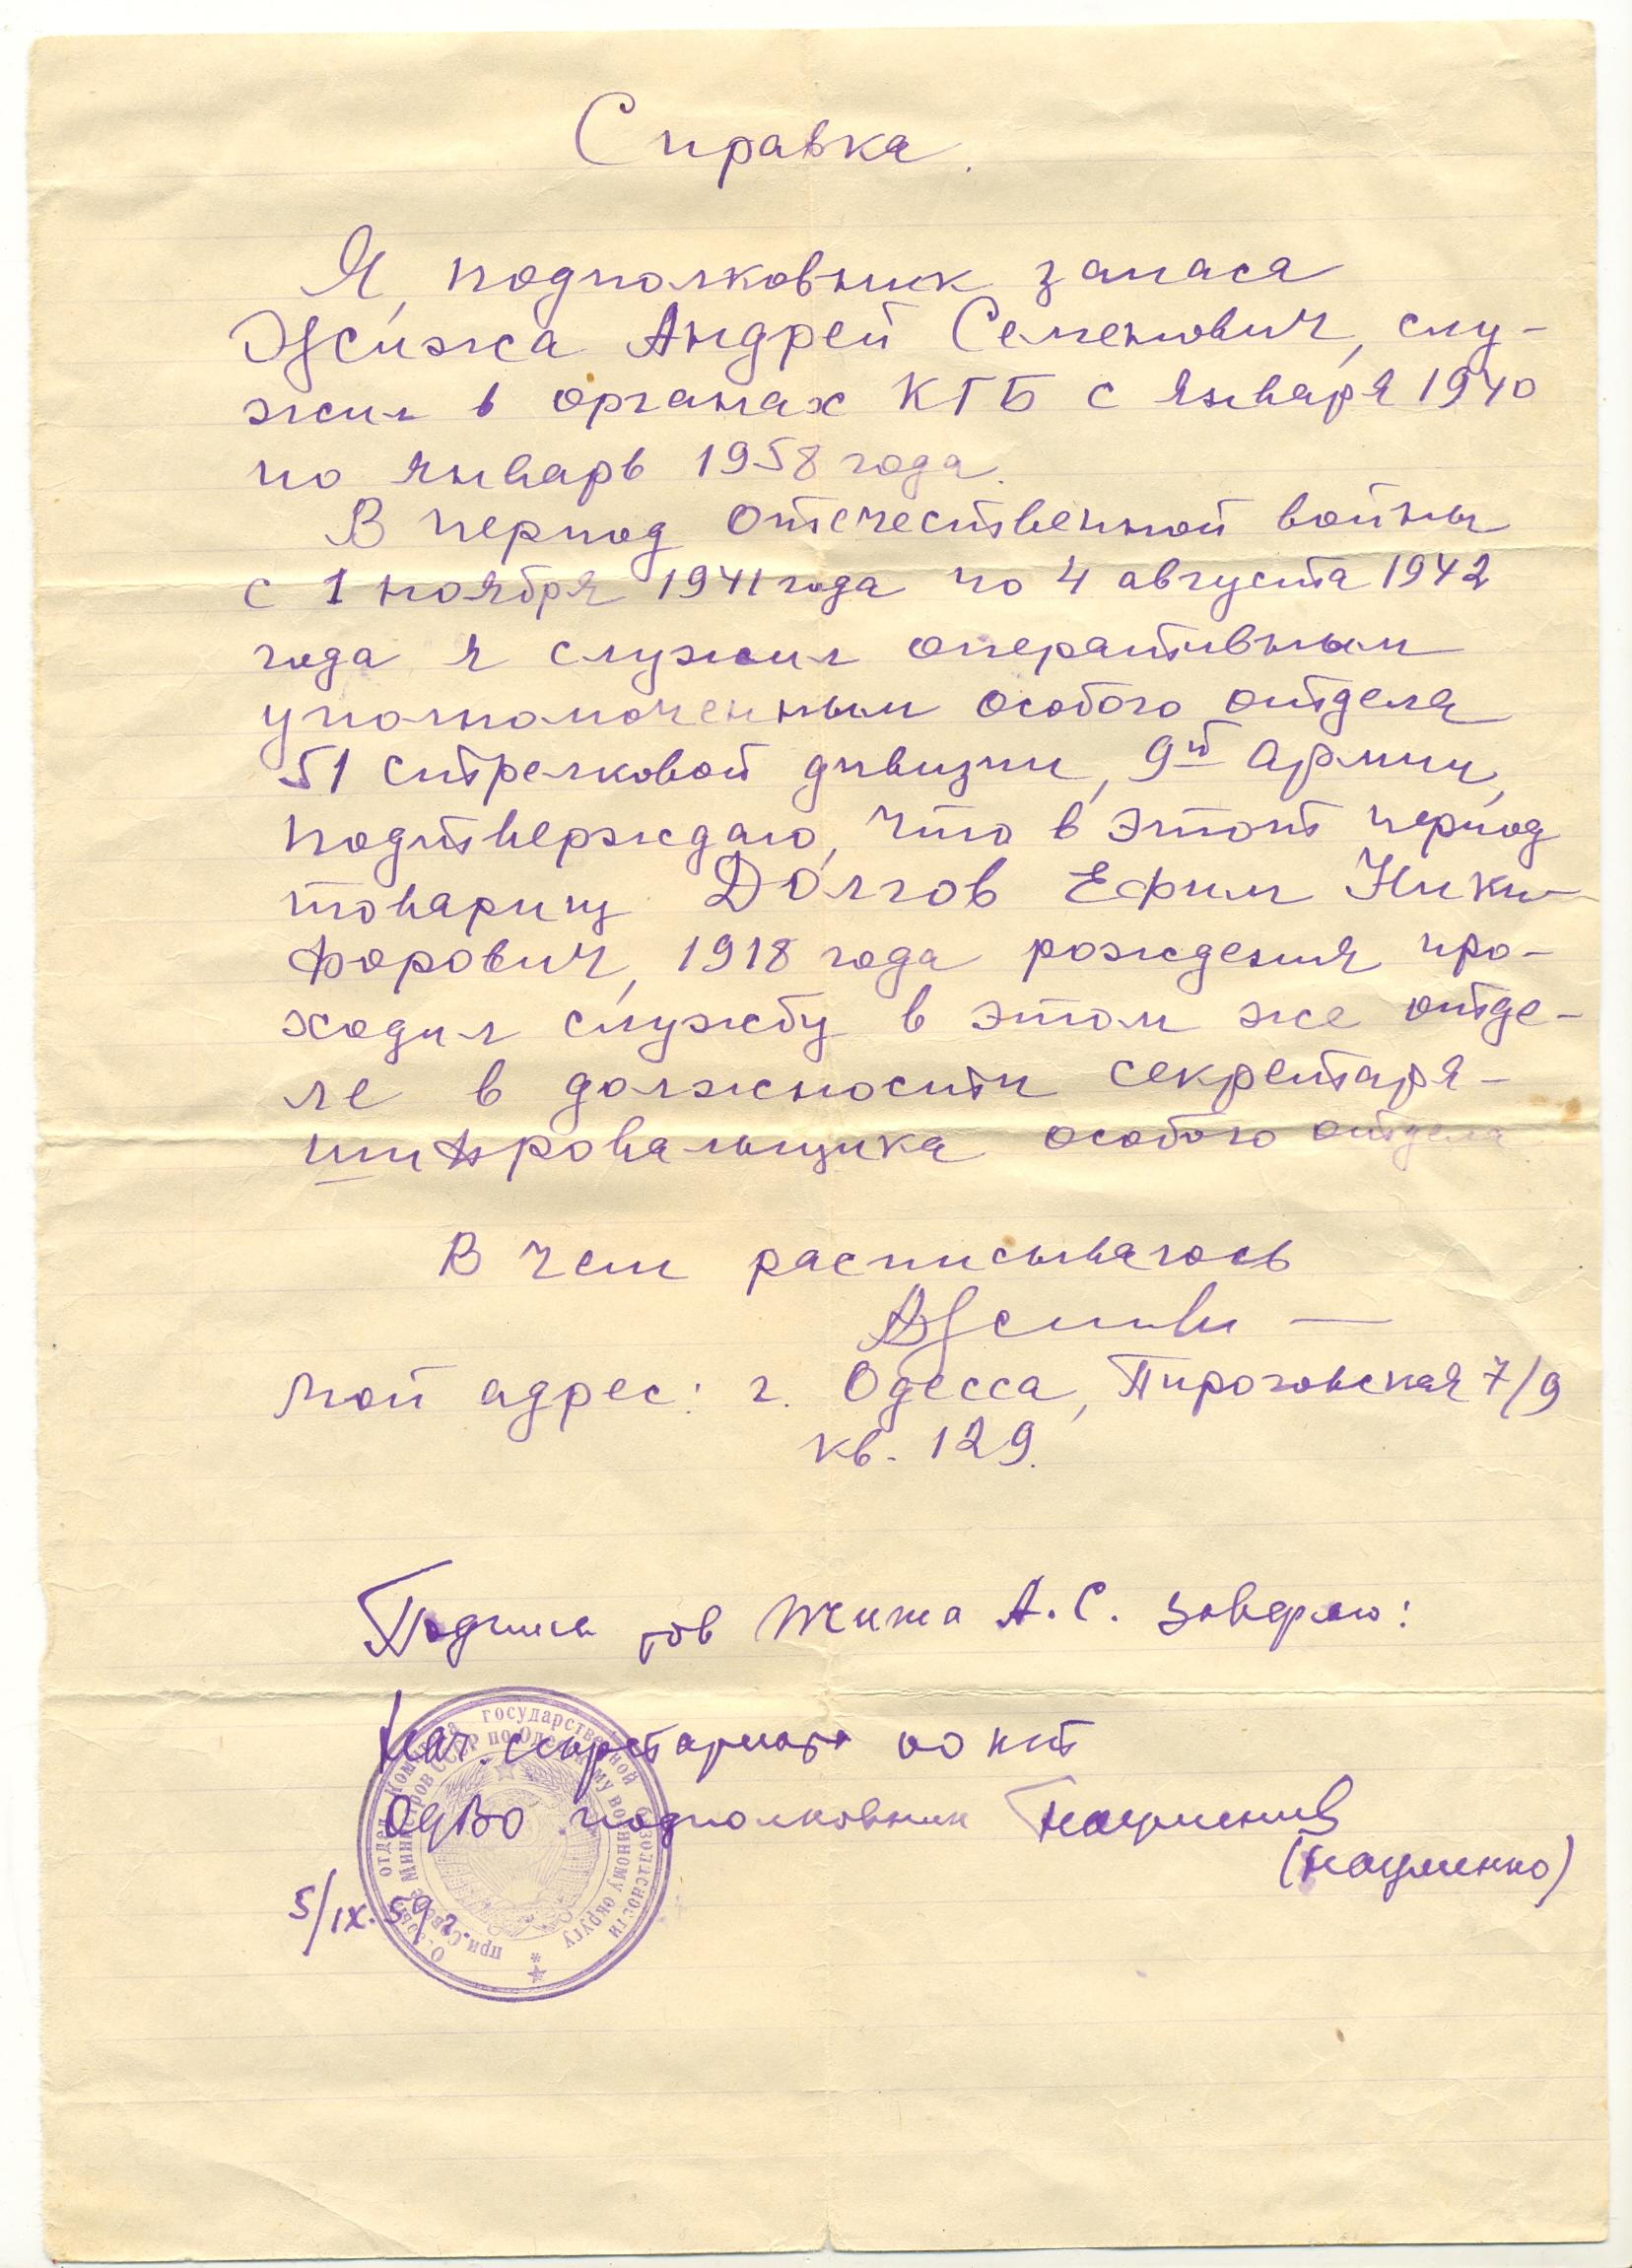 Справка.
Я, подполковник запаса
Жижа Андрей Семенович, слу-
жил в органах КГБ с января 1940
по январь 1958 года.
В период отечественной войны
с 1 ноября 1941 года по 4 августа 1942
года я служил оперативным
уполномоченным особого отдела
51 стрелковой дивизии, 9й Армии,
подтверждаю, что в этот период
товарищ Долгов Ефим Ники-
форович, 1918 года рождения про-
ходил службу в этом же отде-
ле в должности секретаря-
шифровальщика особого отдела
В чем расписываюсь
мой адрес: г. Одесса, Пироговская 7/9
кв. 129.
Подпись тов Жижа А.С. заверяю:
Нач. секретариата ОО КГБ
ОдВО подполковник Науменко
(Науменко)
5/IX.59 г.
Особый отдел Комитета государственной безопасности
при Совете Министров СССР по Одесскому военному округу